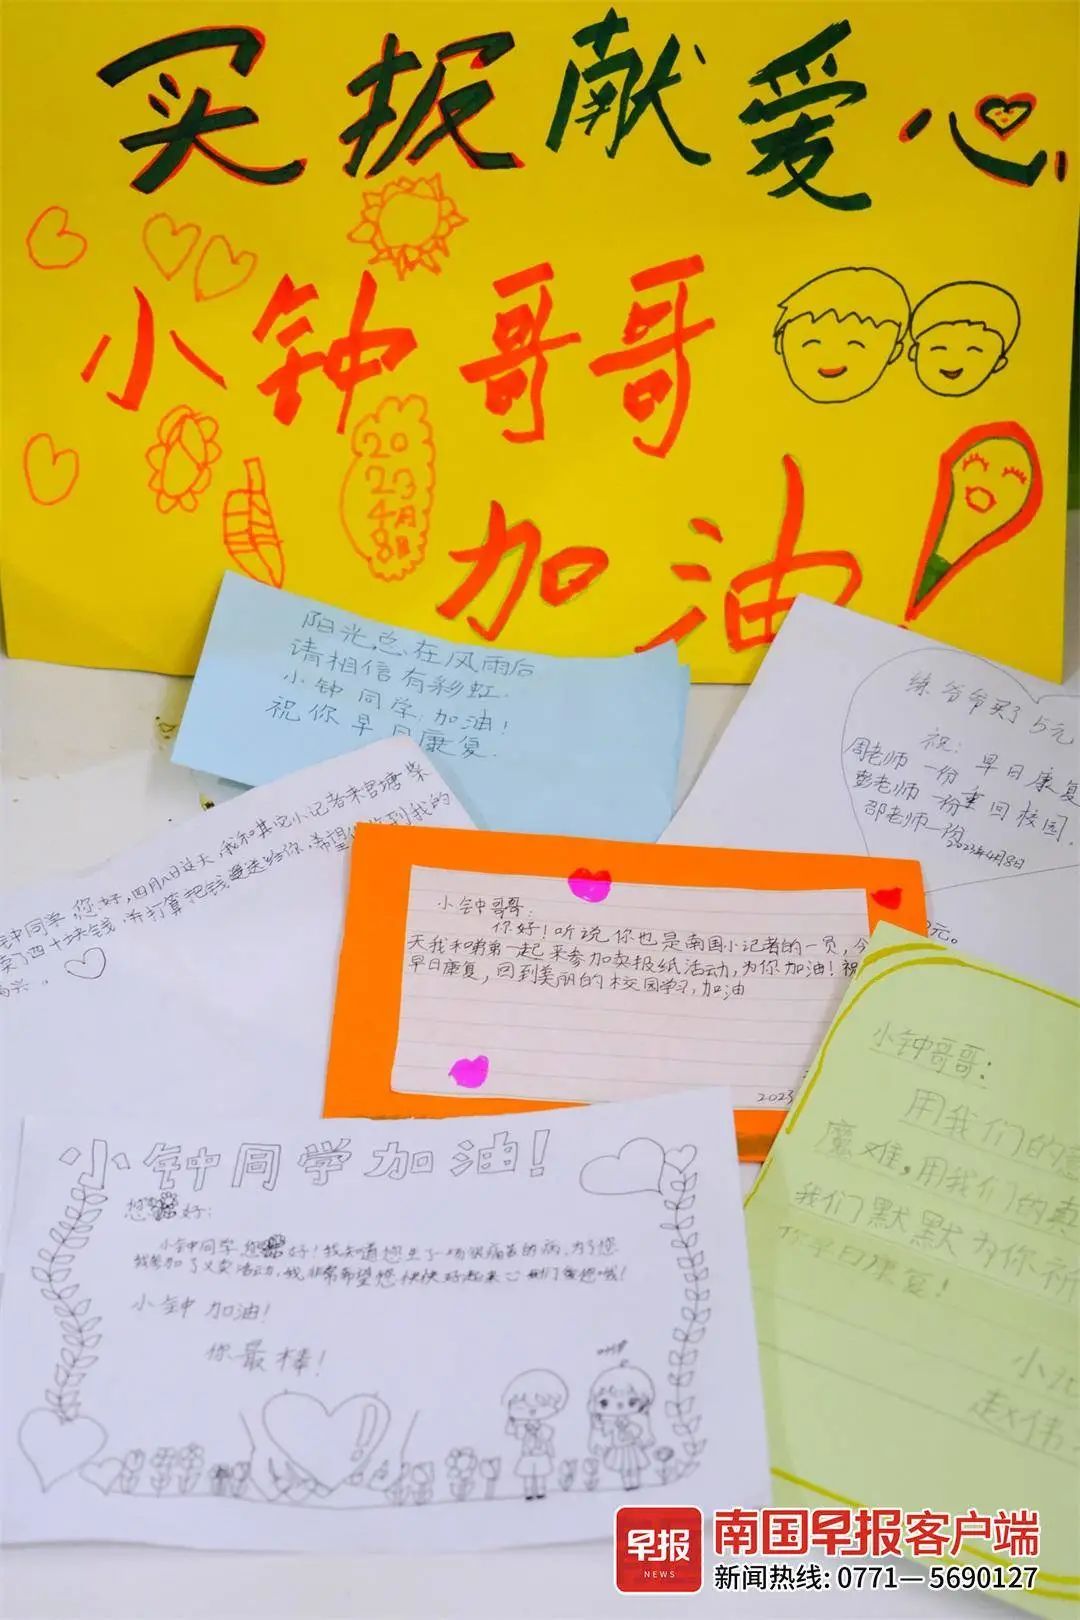 买报献爱心
小钟哥哥
20
23
4月
8日
加油!
阳光总在风雨后
请相信有彩虹.
小钟同学:加油!
祝你早日康复.
练爷爷买了5元
祝:早日康复
周老师一份重回校园.
彭老师一份
邵老师一份
2023年4月8日
元。
钟同学,您好,四月八日这天,我和其它小记者来官塘柴
卖了四十块钱,并打算把钱送给你,希望
收到我的
高兴。
小钟哥哥:
你好!听说你也是南国小记者的一员,今
天我和弟弟一起来参加卖报纸活动,为你加油!祝
早日康复,回到美丽的校园学习,加油
2023
小钟哥哥:
用我们的
魔难,用我们的真
我们默默为你祈
你早日康复!
小记
赵伟
小钟同学加油!
您好:
小钟同学您好!我知道您生了一场很痛苦的病,为了您
我参加了义卖活动,我非常希望您快快好起来
小钟 加油!
你最棒!
早报
NEWS
南国早报客户端
新闻热线:0771—5690127